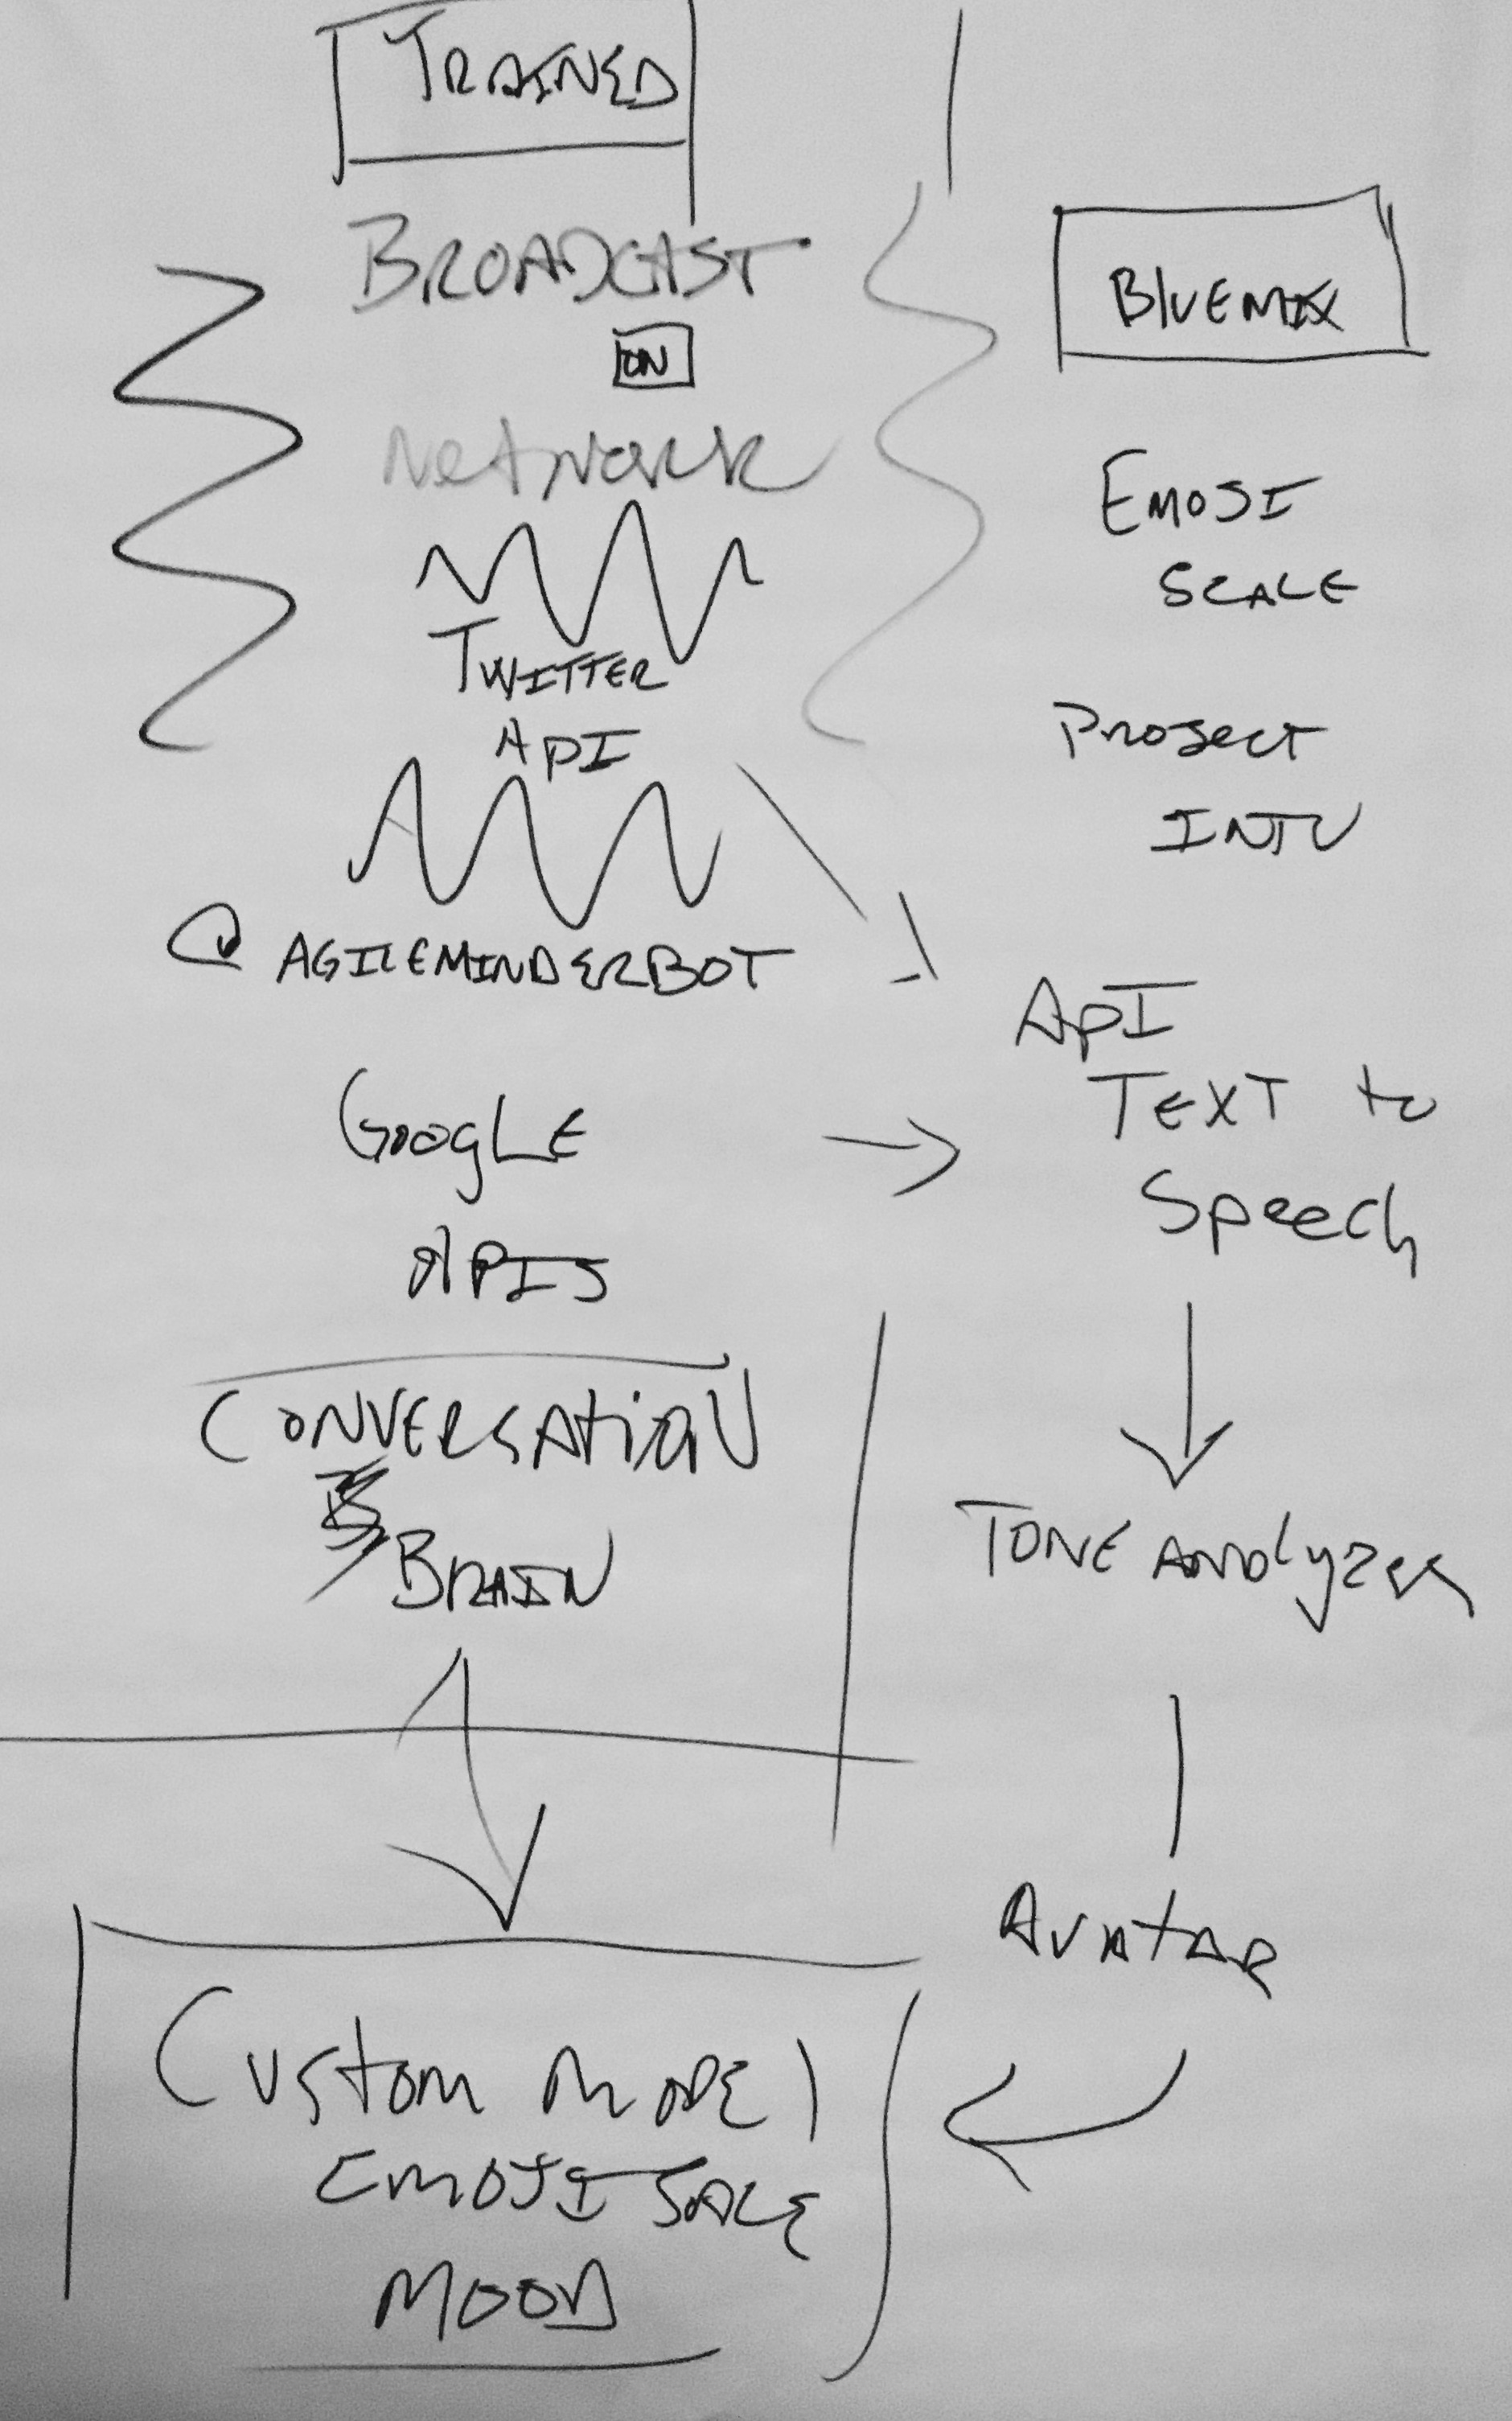 TRAINED
BROADCAST
ON
Network
TWITTER
API
@AGILEMINDERBOT
GOOGLE
APIS
CONVERSATION
BRAIN
Custom MODEl
EMOJI SCALE
MOOD
BlUEMIX
EMOJI
SCALE
PROJECT
INTU
API
TEXT to
Speech
TONE ANALyzER
AVATAR